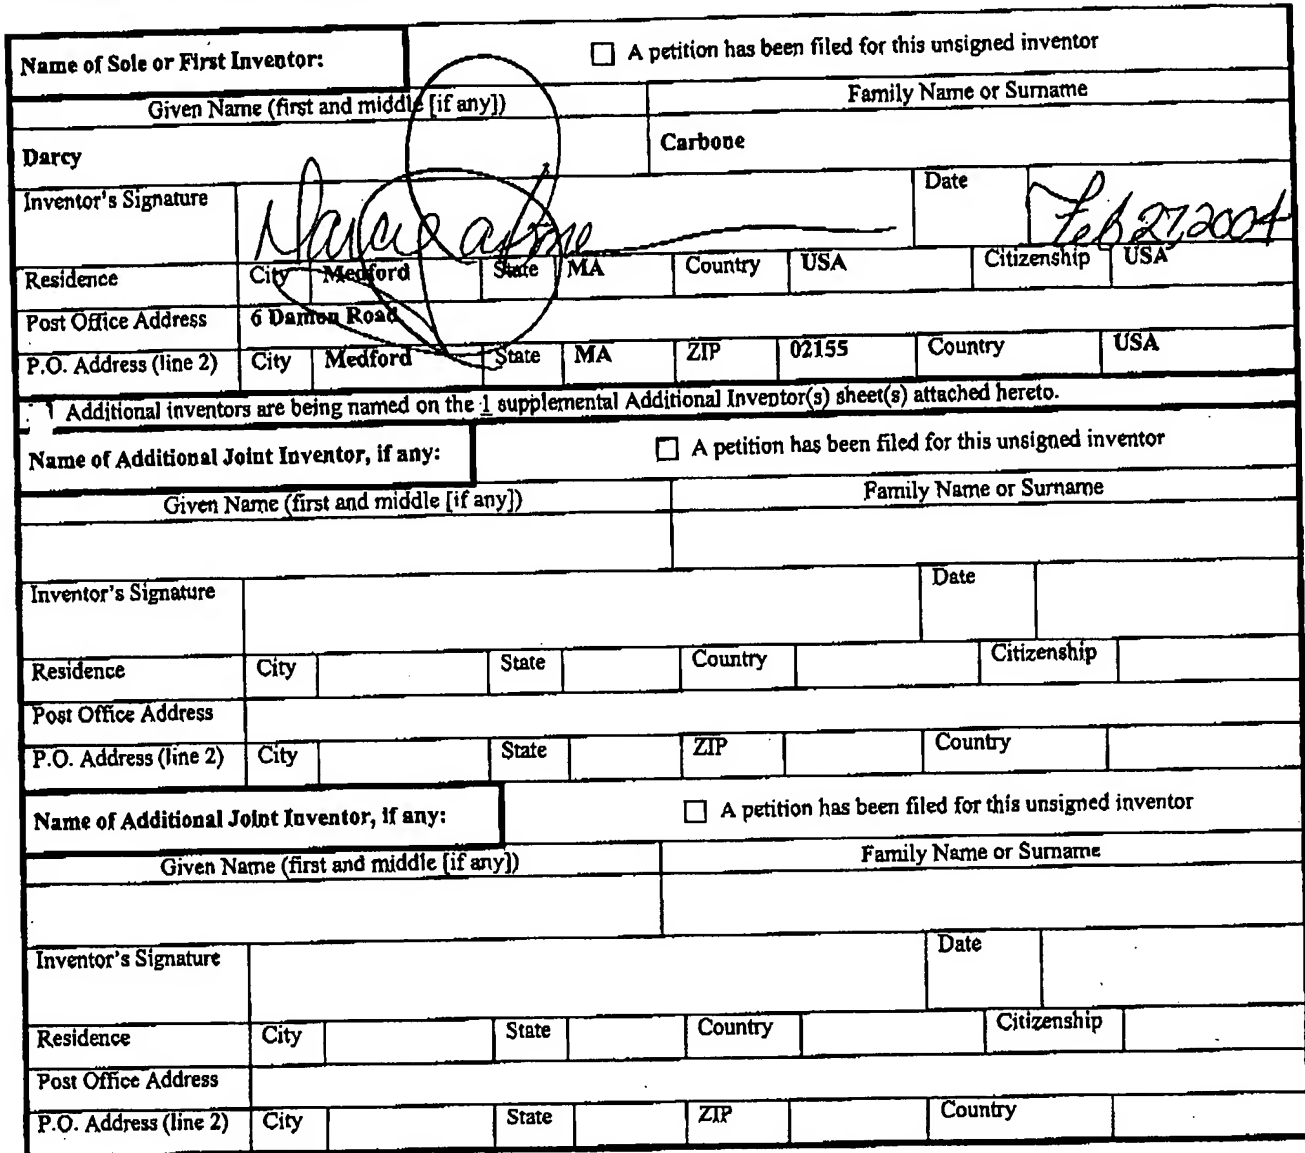 Name of Sole or First Inventor: A petition has been filed for this unsigned inventor
Given Name (first and middle [if any]) Family Name or Surname
Darcy Carbone
Inventor's Signature Date Feb 27, 2004
Residence City Medford State MA Country USA Citizenship USA
Post Office Address 6 Damon Road
P.O. Address (line 2) City Medford State MA ZIP 02155 Country USA
Additional inventors are being named on the 1 supplemental Additional Inventor(s) sheet(s) attached hereto.
Name of Additional Joint Inventor, if any: A petition has been filed for this unsigned inventor
Given Name (first and middle [if any]) Family Name or Surname
Inventor's Signature Date
Residence City State Country Citizenship
Post Office Address
P.O. Address (line 2) City State ZIP Country
Name of Additional Joint Inventor, if any: A petition has been filed for this unsigned inventor
Given Name (first and middle [if any]) Family Name or Surname
Inventor's Signature Date
Residence City State Country Citizenship
Post Office Address
P.O. Address (line 2) City State ZIP Country